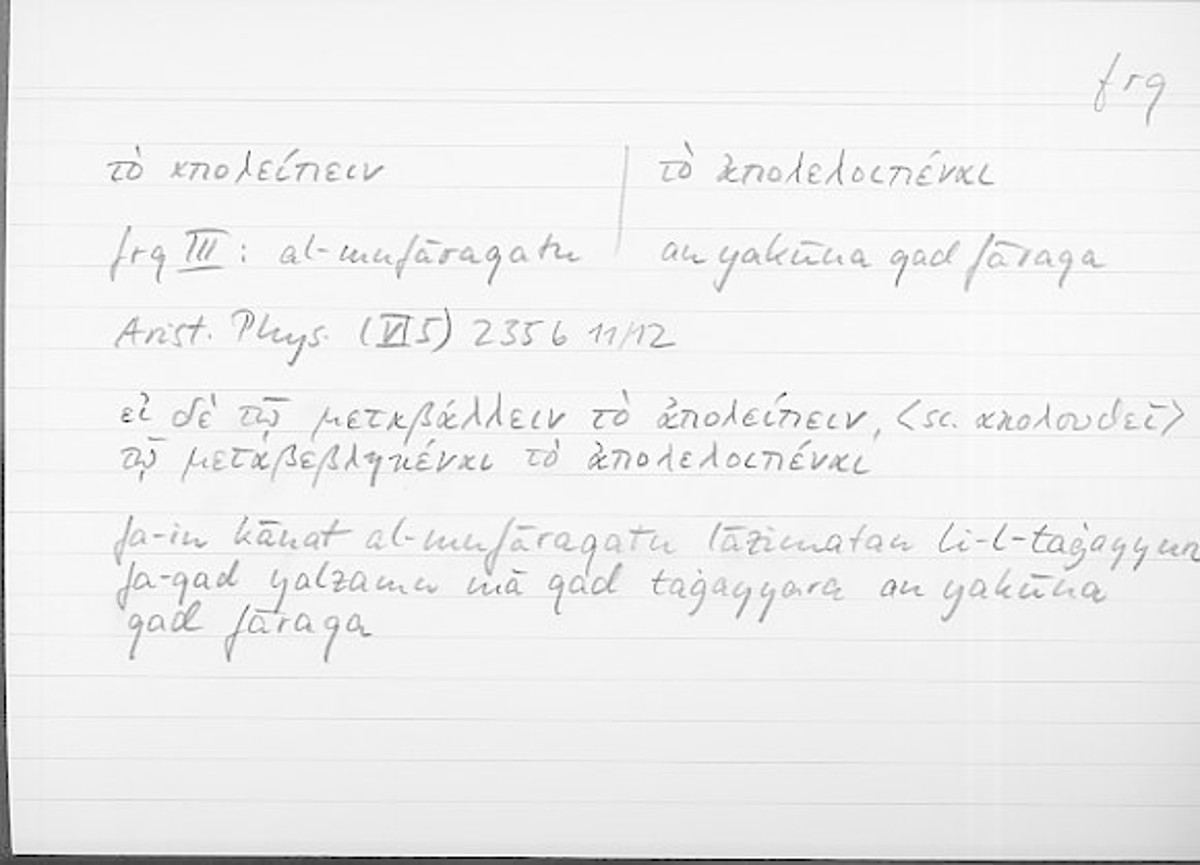 frq
τὸ ἀπολείπειν | τὸ ἀπολελοιπέναι
frq III : al-mufāraqatu | an yakūna qad fāraqa
Arist. Phys. (VI 5) 235 b 11/12
εἰ δὲ τῷ μεταβάλλειν τὸ ἀπολείπειν, <sc. ἀκολουθεῖ>
τῷ μεταβεβληκέναι τὸ ἀπολελοιπέναι
fa-in kānat al-mufāraqatu lāzimatan li-l-taġayyuri
fa-qad yalzamu mā qad taġayyara an yakūna
qad fāraqa